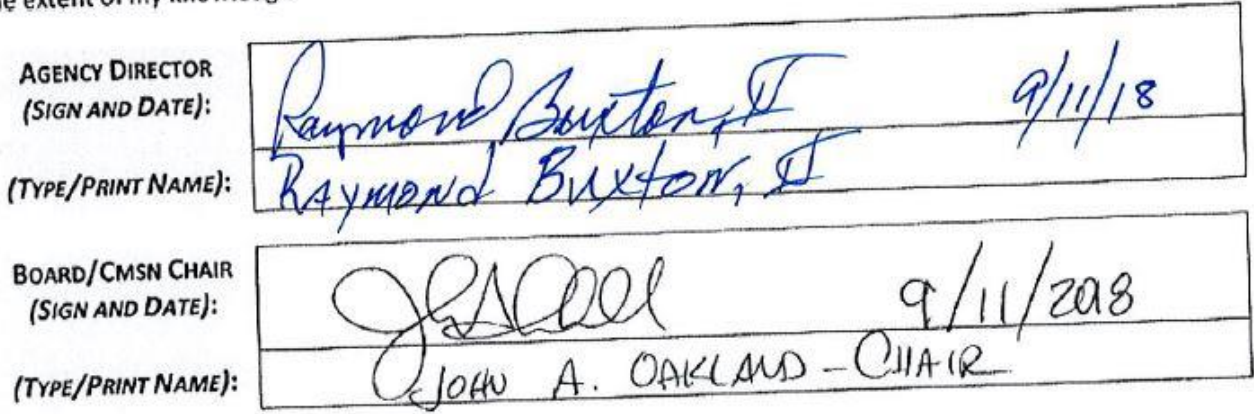 extent of my knowledge
AGENCY DIRECTOR
(SIGN AND DATE):
Raymond Buxton, II 9/11/18
(TYPE/PRINT NAME):
RAYMOND BUXTON, II
BOARD/CMSN CHAIR
(SIGN AND DATE):
9/11/2018
(TYPE/PRINT NAME):
JOHN A. OAKLAND - CHAIR